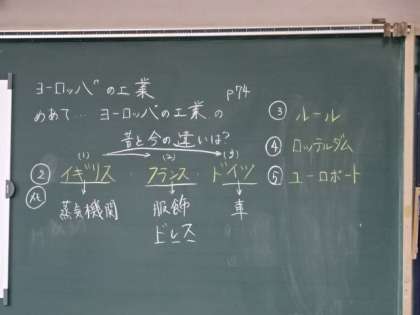 ヨーロッパの工業 p74
めあて… ヨーロッパの工業の
昔と今の違いは?
(1) (2) (3)
② イギリス フランス ドイツ
メモ
蒸気機関 服飾 車
ドレス
③ ルール
④ ロッテルダム
⑤ ユーロポート